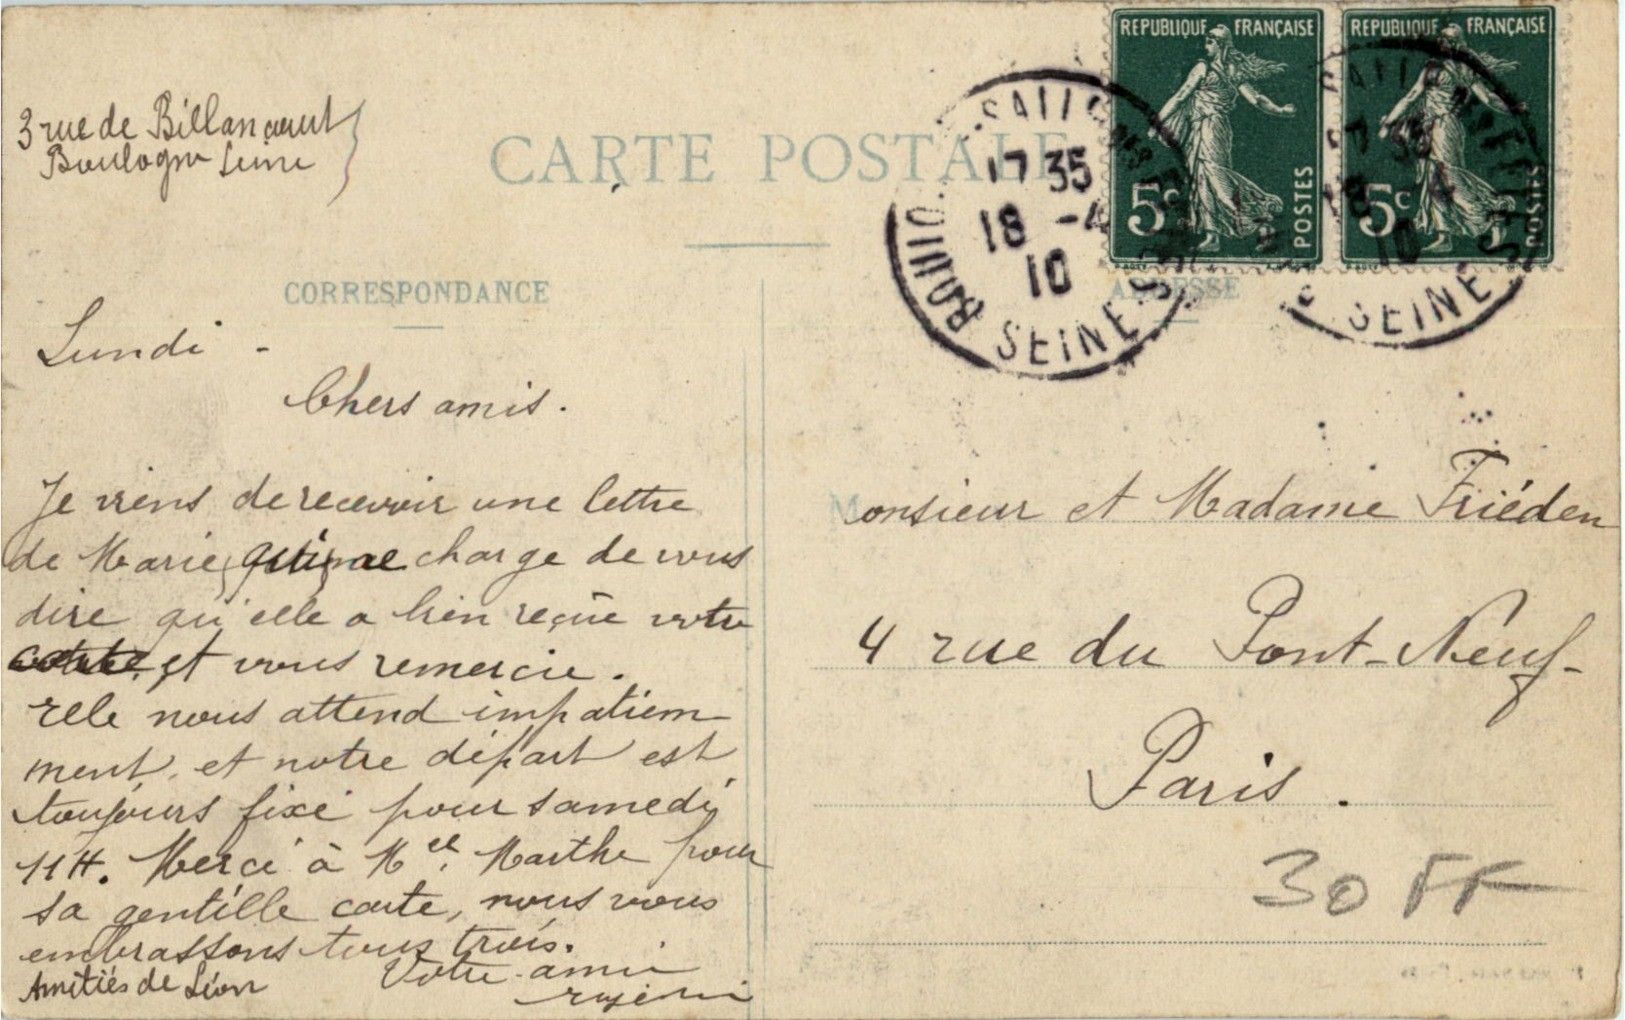 3 rue de Billancourt
Boulogne Seine
CARTE POSTALE
REPUBLIQUE FRANÇAISE
5c POSTES
REPUBLIQUE FRANÇAISE
5c POSTES
17 35
18 -4
10
SEINE
SEINE
10
CORRESPONDANCE
ADRESSE
Lundi -
Chers amis.
Je viens de recevoir une lettre
de Marie, qui me charge de vous
dire qu'elle a bien reçue votre
carte et vous remercie.
Elle nous attend impatiem
ment, et notre départ est
toujours fixé pour samedi
11H. Merci à Melle Marthe pour
sa gentille carte, nous vous
embrassons tous trois.
Votre amie
Amitiés de Léon
Monsieur et Madame Friéden
4 rue du Pont-Neuf-
Paris.
30 FF